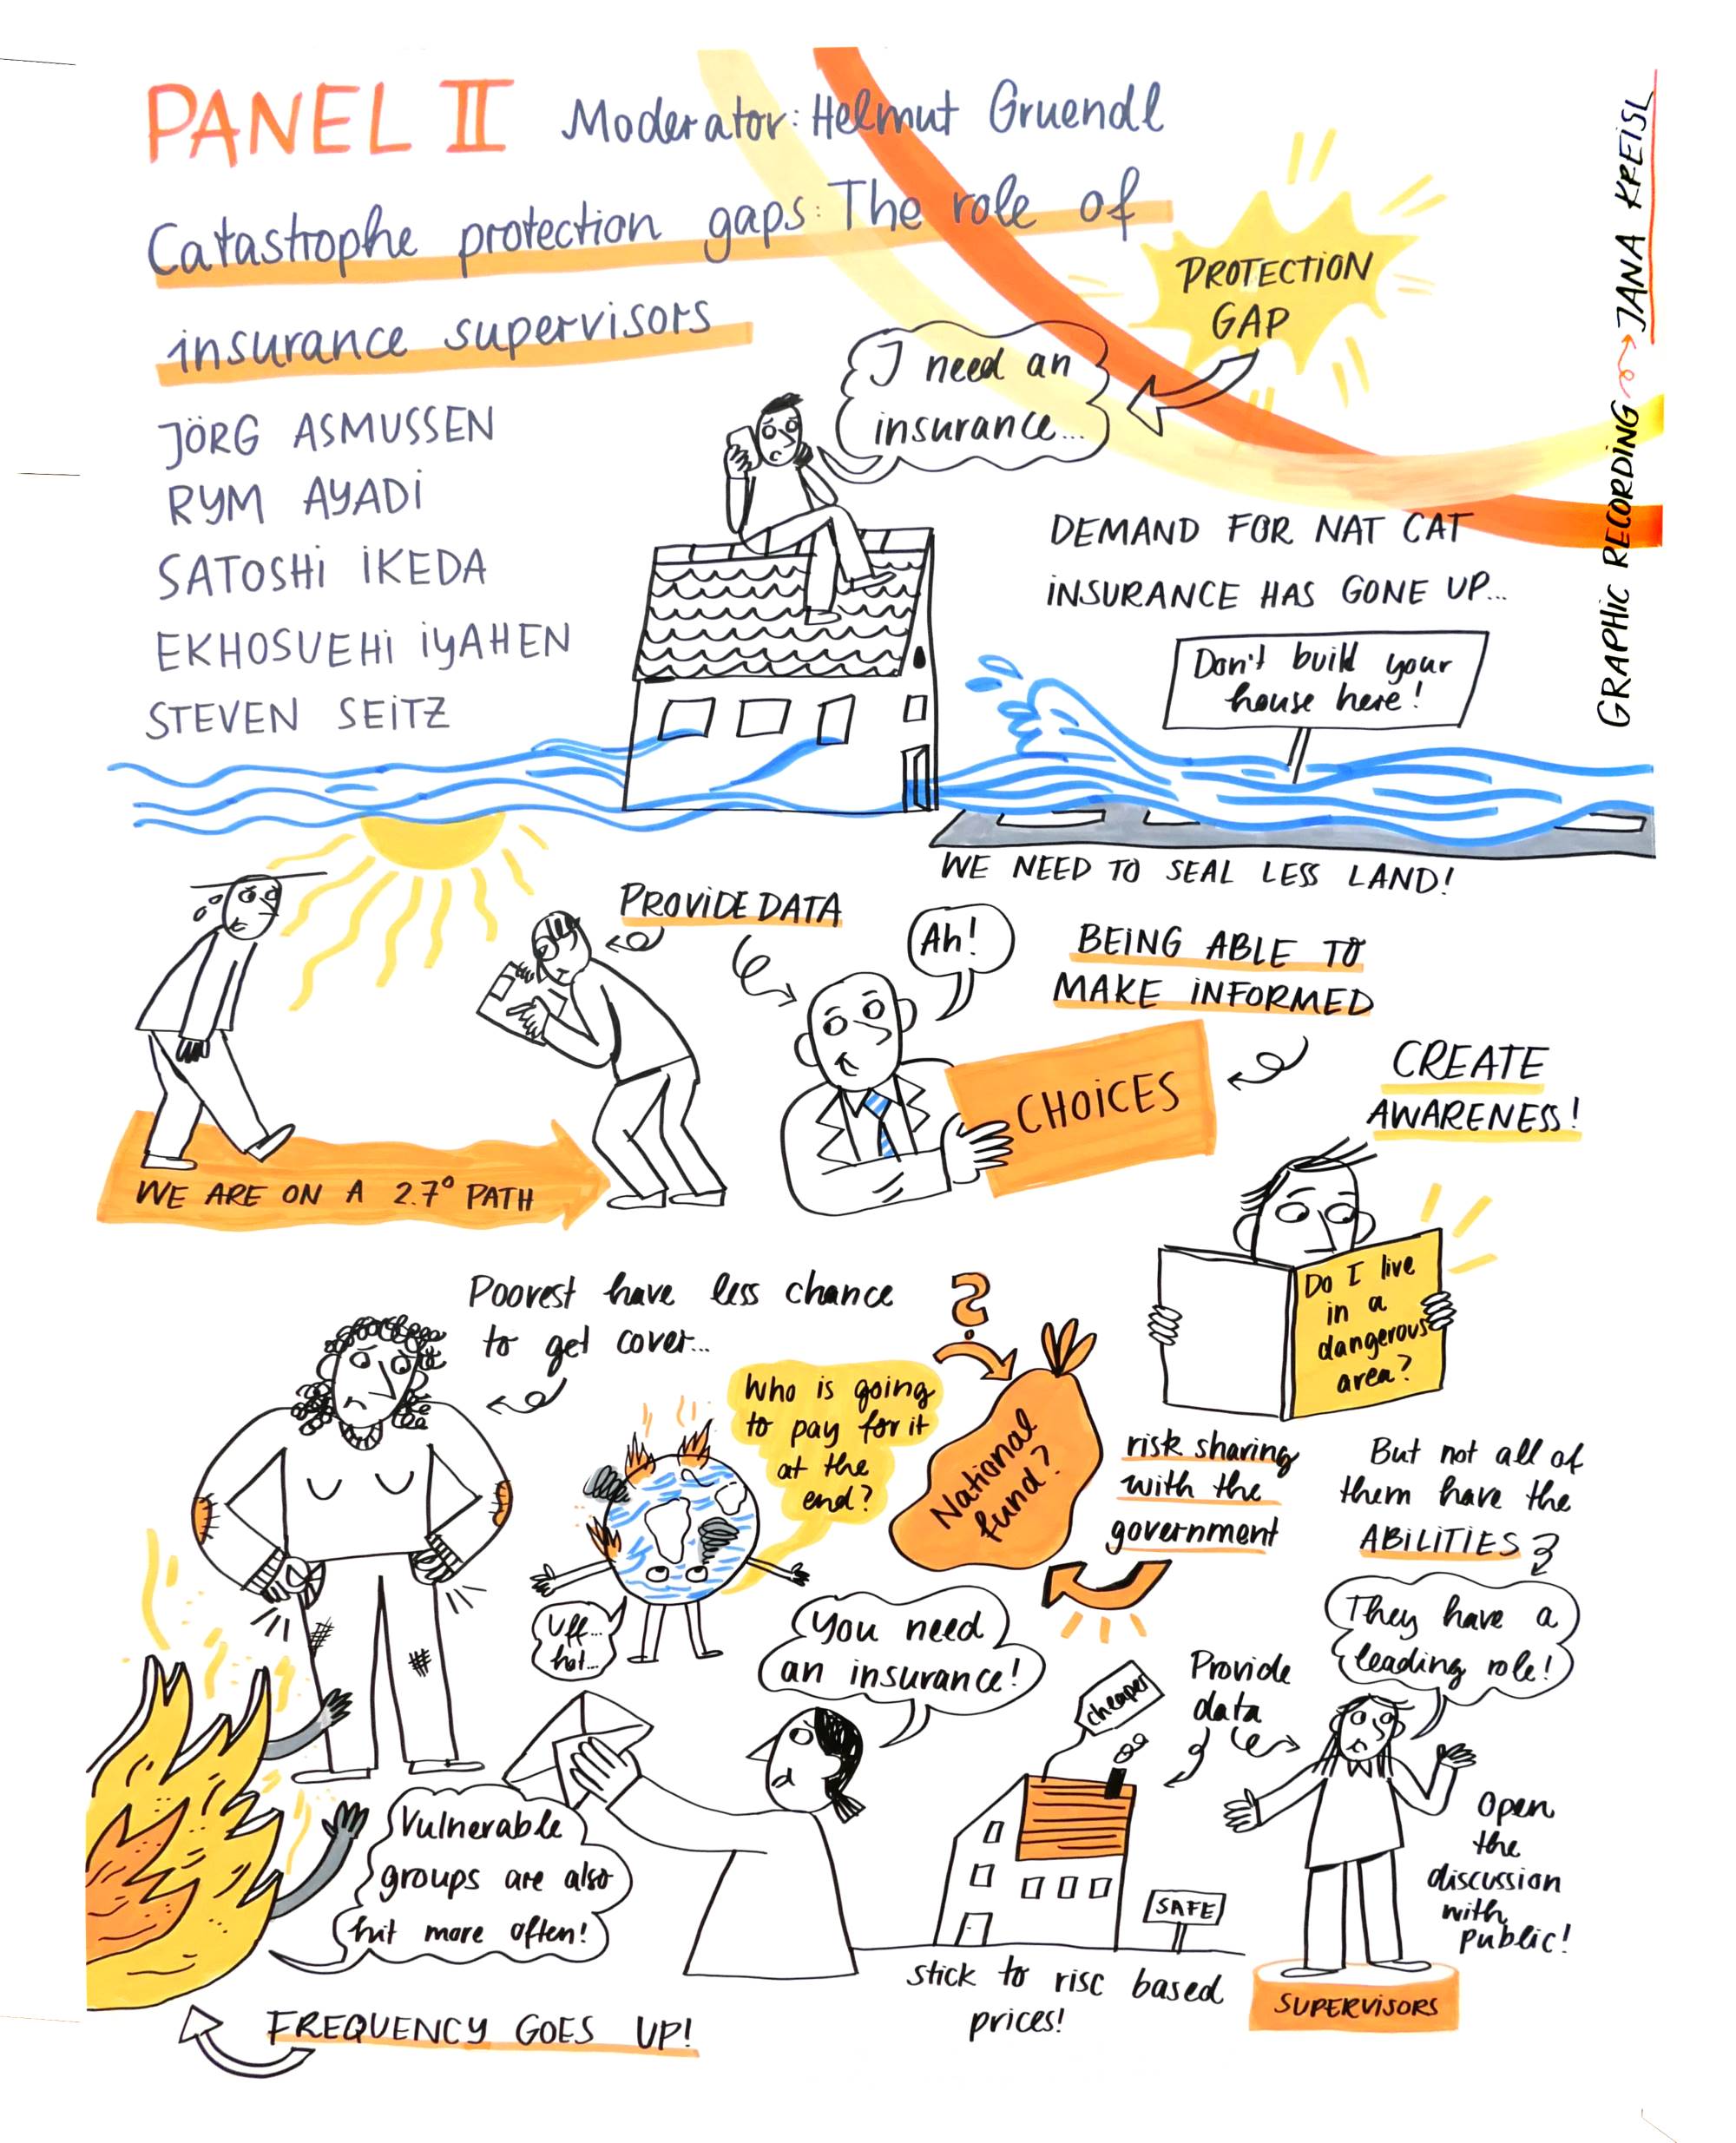 PANEL II Moderator: Helmut Gruendl
Catastrophe protection gaps: The role of
insurance supervisors
JÖRG ASMUSSEN
RYM AYADI
SATOSHI IKEDA
EKHOSUEHI IYAHEN
STEVEN SEITZ
GRAPHIC RECORDING JANA KREISL
PROTECTION
GAP
I need an
insurance...
DEMAND FOR NAT CAT
INSURANCE HAS GONE UP...
Don't build your
house here!
WE NEED TO SEAL LESS LAND!
PROVIDE DATA
Ah!
BEING ABLE TO
MAKE INFORMED
CHOICES
CREATE
AWARENESS!
WE ARE ON A 2.7° PATH
Do I live
in a
dangerous
area?
Poorest have less chance
to get cover...
?
Who is going
to pay for it
at the
end?
National
fund?
risk sharing
with the
government
But not all of
them have the
ABILITIES
Uff...
hot...
You need
an insurance!
They have a
leading role!
cheaper
Provide
data
Open
the
discussion
with
public!
Vulnerable
groups are also
hit more often!
SAFE
stick to risc based
prices!
SUPERVISORS
FREQUENCY GOES UP!